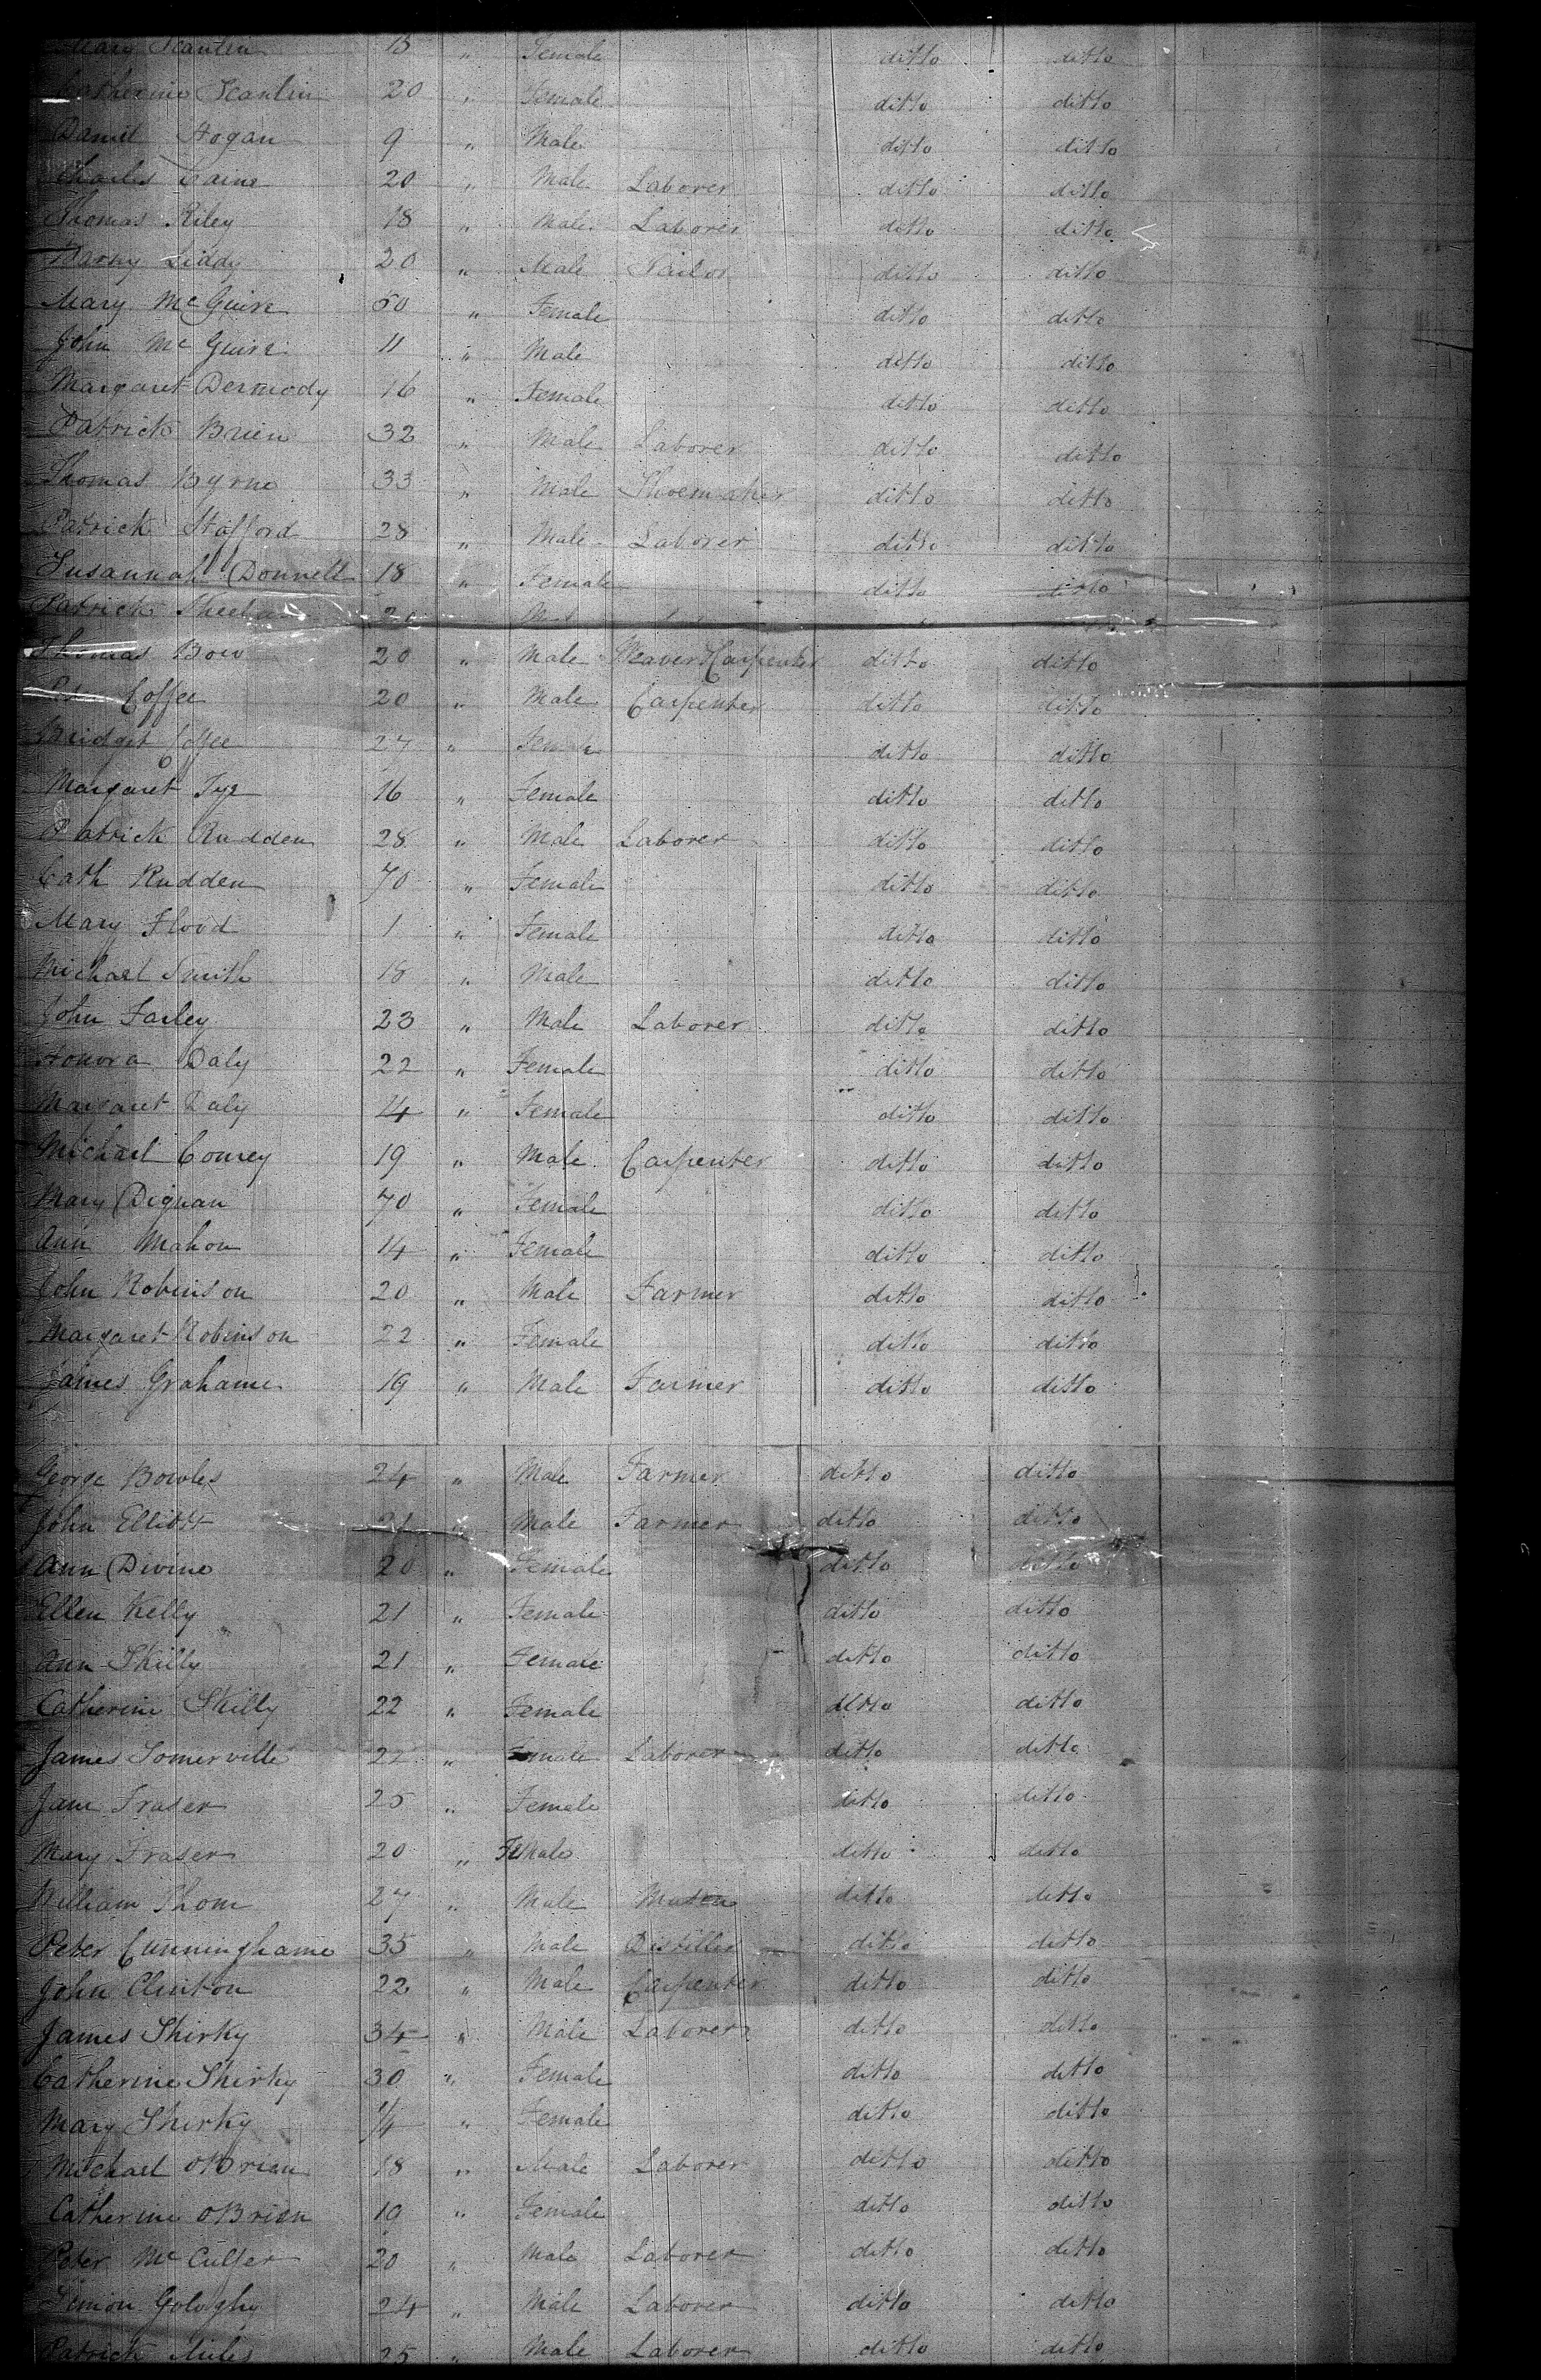 Mary Scanlin 15 " Female ditto ditto
Catherine Scanlin 20 " Female ditto ditto
Daniel Hogan 9 " Male ditto ditto
Charles Caine 20 " Male Laborer ditto ditto
Thomas Riley 18 " Male Laborer ditto ditto
Barny Liddy 20 " Male Tailor ditto ditto
Mary McGuire 50 " Female ditto ditto
John McGuire 11 " Male ditto ditto
Margaret Dermody 16 " Female ditto ditto
Patrick Brien 32 " Male Laborer ditto ditto
Thomas Byrne 33 " Male Shoemaker ditto ditto
Patrick Stafford 28 " Male Laborer ditto ditto
Susannah Donnell 18 " Female ditto ditto
Patrick
Thomas Bow 20 " Male Weaver & Carpenter ditto ditto
Peter Coffee 20 " Male Carpenter ditto ditto
Bridget Coffee 27 " Female ditto ditto
Margaret Tye 16 " Female ditto ditto
Patrick Rudden 28 " Male Laborer ditto ditto
Cath Rudden 70 " Female ditto ditto
Mary Flood 1 " Female ditto ditto
Michael Smith 18 " Male ditto ditto
John Farley 23 " Male Laborer ditto ditto
Honora Daly 22 " Female ditto ditto
Margaret Daly 4 " Female ditto ditto
Michael Comey 19 " Male Carpenter ditto ditto
Mary Dignan 70 " Female ditto ditto
Ann Mahon 14 " Female ditto ditto
John Robinson 20 " Male Farmer ditto ditto
Margaret Robinson 22 " Female ditto ditto
James Grahame 19 " Male Farmer ditto ditto
George Bowles 24 " Male Farmer ditto ditto
John Elliott 21 " Male Farmer ditto ditto
Ann Divine 20 " Female ditto ditto
Ellen Kelly 21 " Female ditto ditto
Ann Skilly 21 " Female ditto ditto
Catherine Skilly 22 " Female ditto ditto
James Somerville 22 " male Laborer ditto ditto
Jane Fraser 25 " Female ditto ditto
Mary Fraser 20 " FeMale ditto ditto
William Thom 27 " Male Mason ditto ditto
Peter Cunninghame 35 " Male Distiller ditto ditto
John Clinton 22 " Male Carpenter ditto ditto
James Shirky 34 " Male Laborer ditto ditto
Catherine Shirky 30 " Female ditto ditto
Mary Shirky 1/4 " Female ditto ditto
Michael OBrian 18 " Male Laborer ditto ditto
Catherine OBrien 19 " Female ditto ditto
Peter McCulfer 20 " Male Laborer ditto ditto
Simon Gologhy 24 " Male Laborer ditto ditto
Patrick Miles 25 " Male Laborer ditto ditto